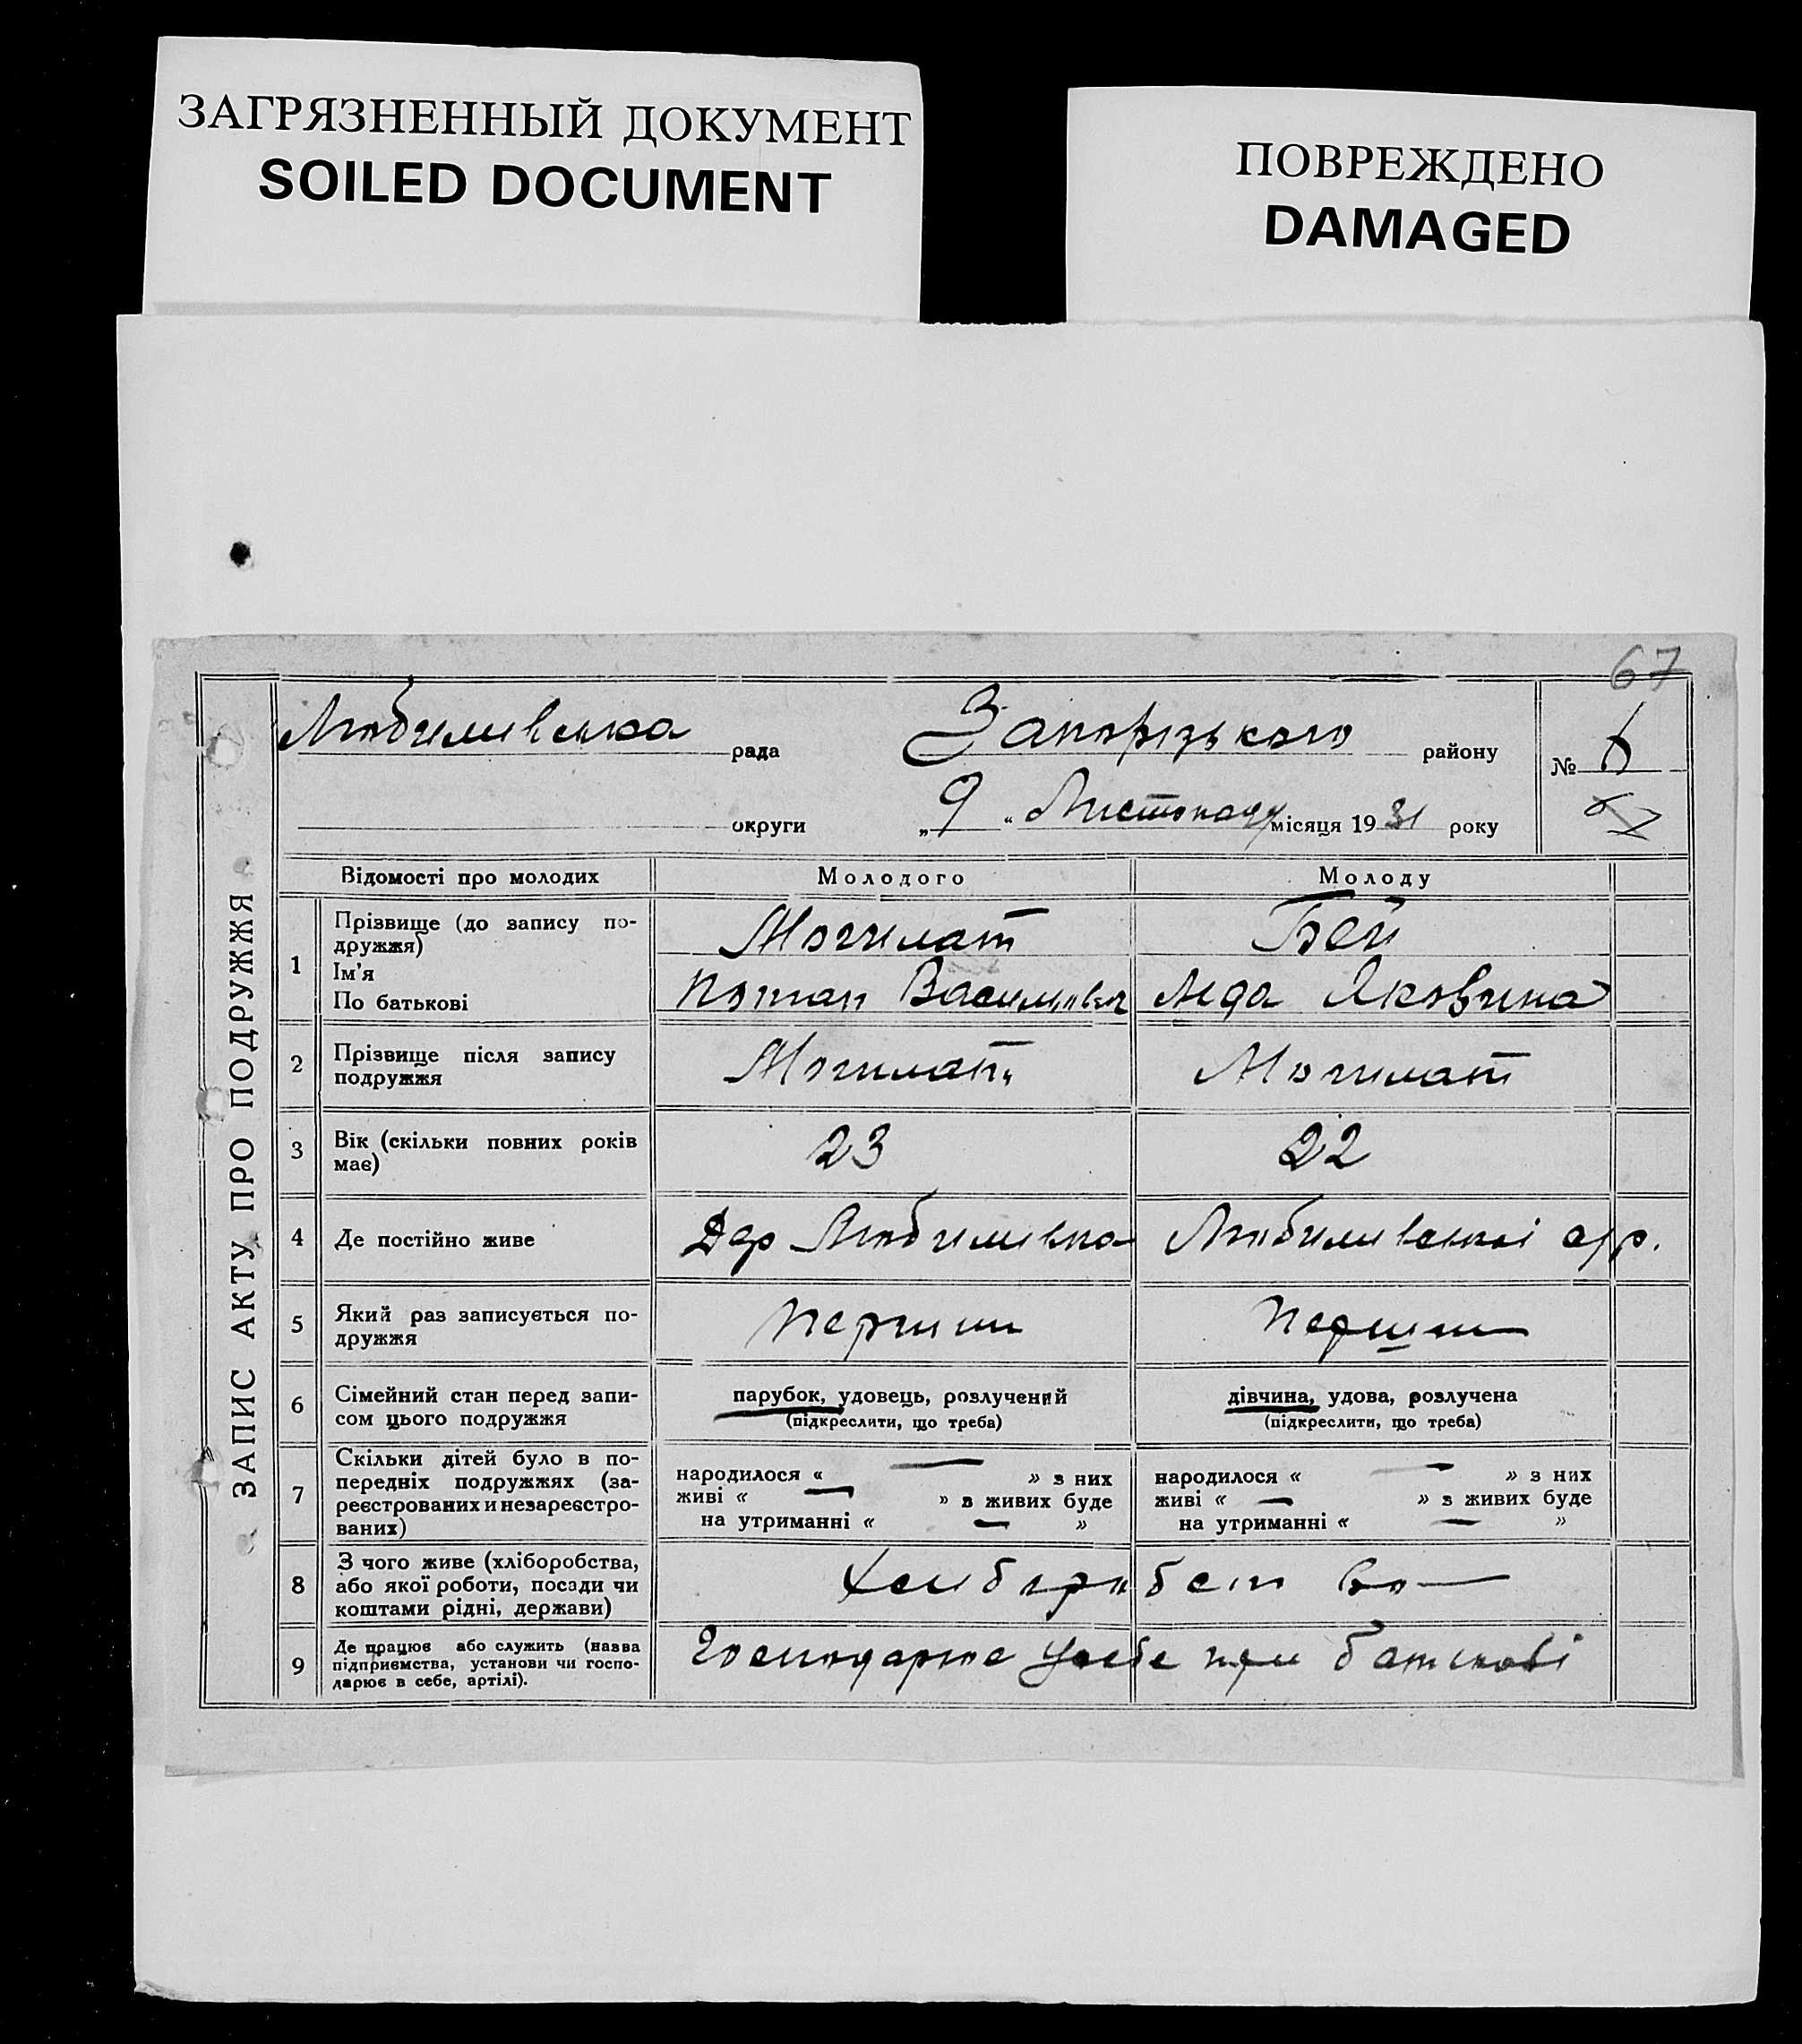 ЗАГРЯЗНЕННЫЙ ДОКУМЕНТ
SOILED DOCUMENT
ПОВРЕЖДЕНО
DAMAGED
67
ЗАПИС АКТУ ПРО ПОДРУЖЖЯ
Любимівська рада Запорізького району № 6
округи „9“ Листопаду місяця 1931 року
Відомості про молодих Молодого Молоду
1 Прізвище (до запису по-
дружжя) Могилат Бей
Ім'я
По батькові Потап Васильович Яковлина
2 Прізвище після запису
подружжя Могилат Могилат
3 Вік (скільки повних років
має) 23 22
4 Де постійно живе Дер Любимівка Любимівської с/р.
5 Який раз записується по-
дружжя Перший Перший
6 Сімейний стан перед запи-
сом цього подружжя парубок, удовець, розлучений дівчина, удова, розлучена
(підкреслити, що треба) (підкреслити, що треба)
7 Скільки дітей було в по-
передніх подружжях (за-
реєстрованих и незареєстро-
ваних)
народилося « — » з них народилося « — » з них
живі « — » з живих буде живі « — » з живих буде
на утриманні « — » на утриманні « — »
8 З чого живе (хліборобства,
або якої роботи, посади чи
коштами рідні, держави)
9 Де працює або служить (назва
підприємства, установи чи госпо-
дарює в себе, артілі). Господарює у себе при батькові